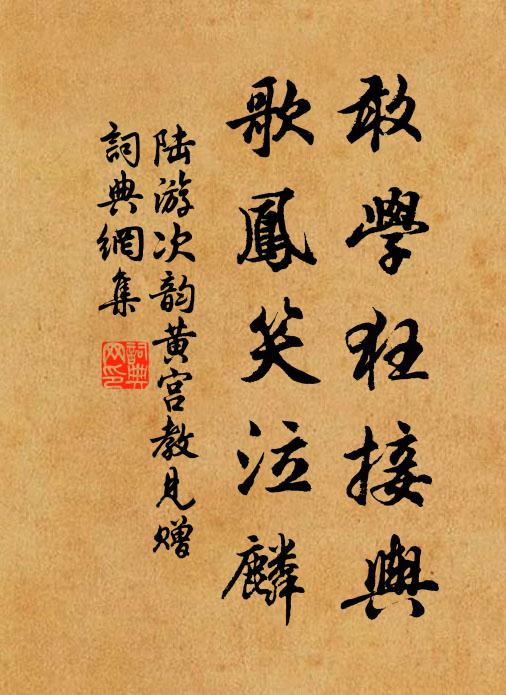 敢學狂接輿
歌鳳笑泣麟
陆游次韵黄宫教见赠
詞典網集
詞典
网印